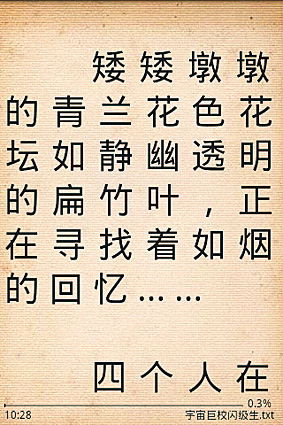 矮矮墩墩
的青兰花色花
坛如静幽透明
的扁竹叶，正
在寻找着如烟
的回忆……
四个人在
0.3%
10:28 宇宙巨校闪级生.txt